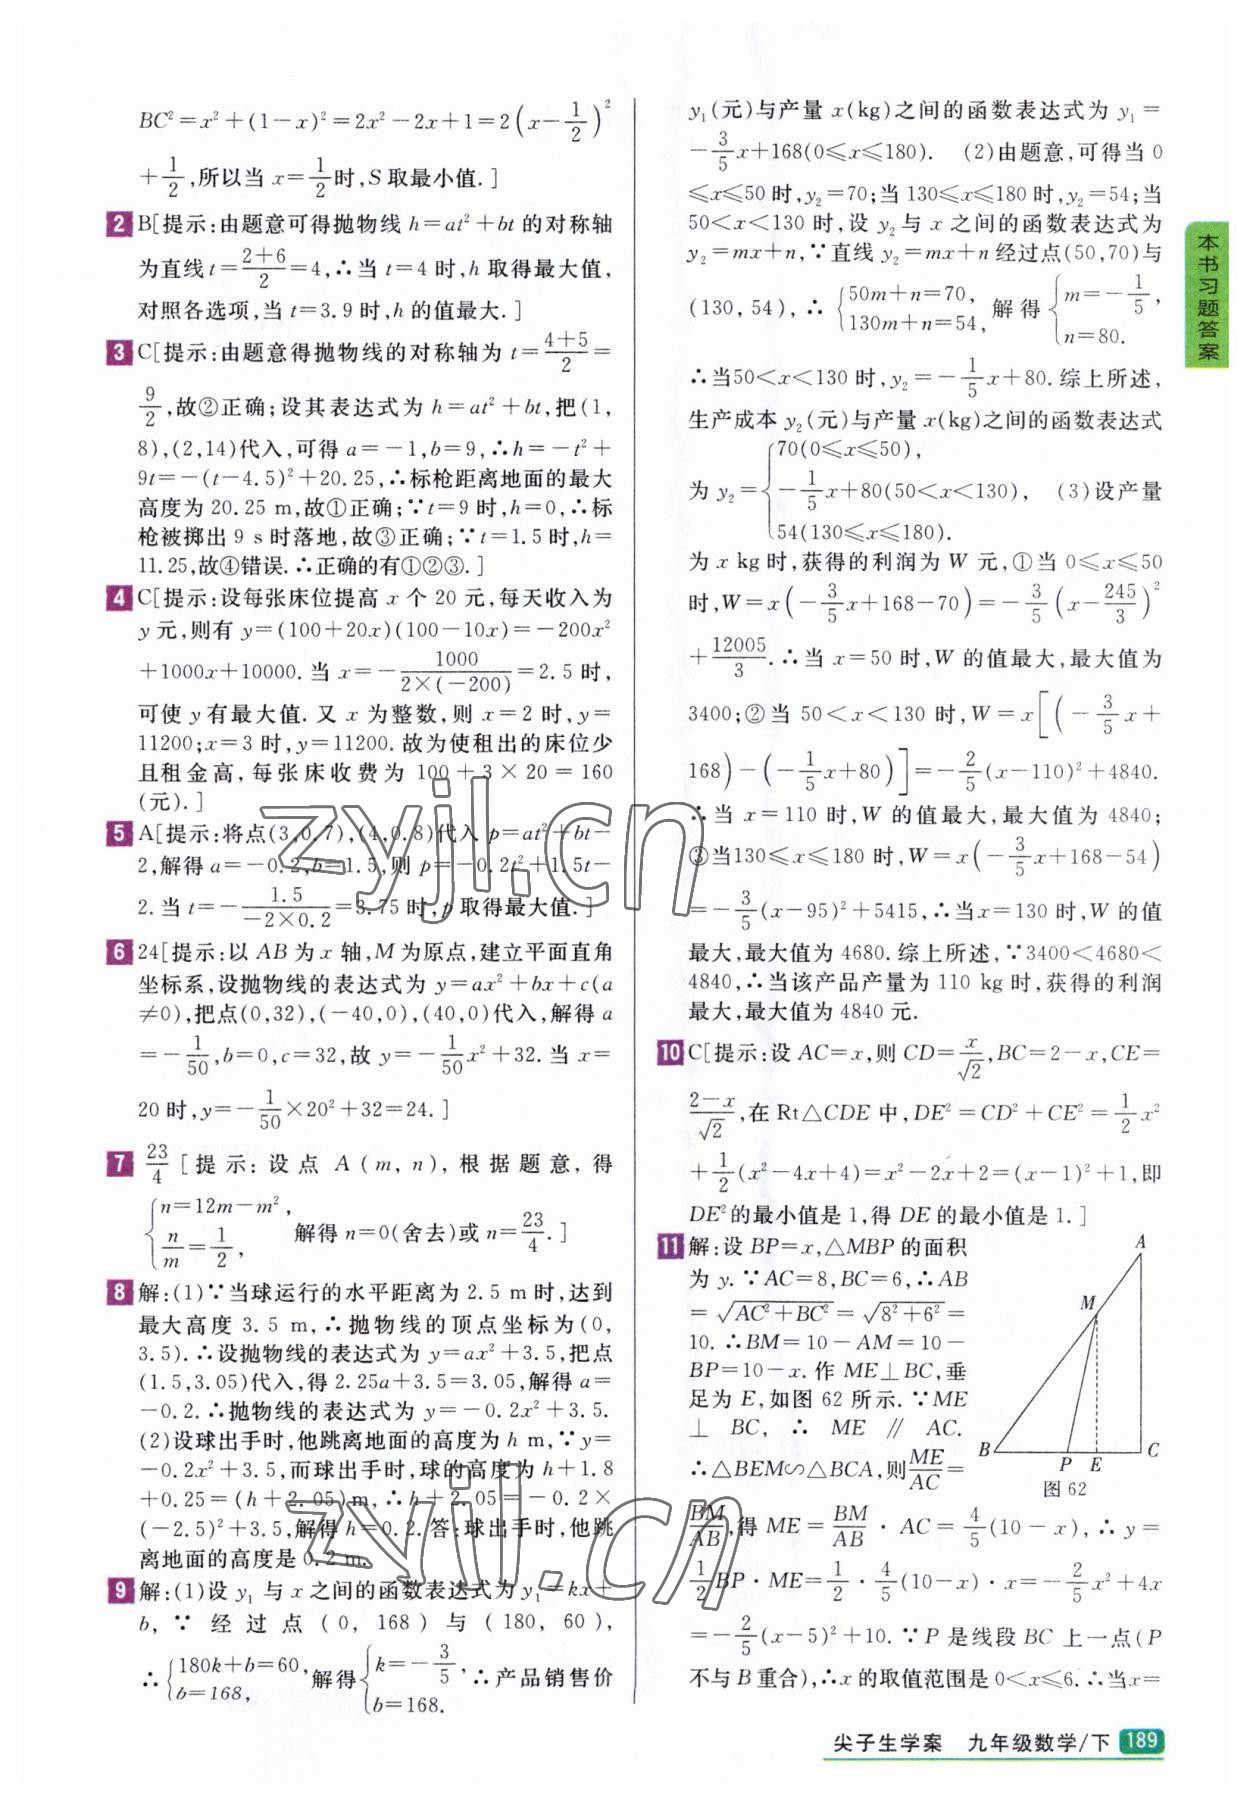 BC²=x²+(1-x)²=2x²-2x+1=2(x-1/2)²
+1/2,所以当 x=1/2时,S取最小值.]
2 B[提示:由题意可得抛物线 h=at²+bt 的对称轴
为直线t=(2+6)/2=4,∴当 t=4 时,h 取得最大值,
对照各选项,当 t=3.9 时,h 的值最大.]
3 C[提示:由题意得抛物线的对称轴为 t=(4+5)/2=
9/2,故②正确;设其表达式为 h=at²+bt,把(1,
8),(2,14)代入,可得 a=-1,b=9,∴h=-t²+
9t=-(t-4.5)²+20.25,∴标枪距离地面的最大
高度为 20.25 m,故①正确;∵t=9 时,h=0,∴标
枪被掷出 9 s时落地,故③正确;∵t=1.5 时,h=
11.25,故④错误.∴正确的有①②③.]
4 C[提示:设每张床位提高 x 个 20 元,每天收入为
y 元,则有 y=(100+20x)(100-10x)=-200x²
+1000x+10000.当 x=-1000/(2×(-200))=2.5 时,
可使 y 有最大值.又 x 为整数,则 x=2 时,y=
11200;x=3 时,y=11200.故为使租出的床位少
且租金高,每张床收费为 100+3×20=160
(元).]
5 A[提示:将点(3,0.7),(4,0.8)代入 p=at²+bt-
2,解得 a=-0.2,b=1.5,则 p=-0.2t²+1.5t-
2.当 t=-1.5/(-2×0.2)=3.75 时,p 取得最大值.]
6 24[提示:以 AB 为 x 轴,M为原点,建立平面直角
坐标系,设抛物线的表达式为 y=ax²+bx+c(a
≠0),把点(0,32),(-40,0),(40,0)代入,解得 a
=-1/50,b=0,c=32,故 y=-1/50x²+32.当 x=
20 时,y=-1/50×20²+32=24.]
7 23/4[提示:设点 A(m,n),根据题意,得
{n=12m-m², n/m=1/2, 解得 n=0(舍去)或 n=23/4.]
8 解:(1)∵当球运行的水平距离为 2.5 m时,达到
最大高度 3.5 m,∴抛物线的顶点坐标为(0,
3.5).∴设抛物线的表达式为 y=ax²+3.5,把点
(1.5,3.05)代入,得 2.25a+3.5=3.05,解得 a=
-0.2.∴抛物线的表达式为 y=-0.2x²+3.5.
(2)设球出手时,他跳离地面的高度为 h m,∵y=
-0.2x²+3.5,而球出手时,球的高度为 h+1.8
+0.25=(h+2.05)m,∴h+2.05=-0.2×
(-2.5)²+3.5,解得 h=0.2.答:球出手时,他跳
离地面的高度是 0.2 m.
9 解:(1)设 y₁ 与 x 之间的函数表达式为 y₁=kx+
b,∵经过点(0,168)与(180,60),
∴{180k+b=60, b=168, 解得{k=-3/5, b=168. ∴产品销售价
y₁(元)与产量 x(kg)之间的函数表达式为 y₁=
-3/5x+168(0≤x≤180). (2)由题意,可得当 0
≤x≤50 时,y₂=70;当 130≤x≤180 时,y₂=54;当
50<x<130 时,设 y₂ 与 x 之间的函数表达式为
y₂=mx+n,∵直线 y₂=mx+n 经过点(50,70)与
(130,54),∴{50m+n=70, 130m+n=54, 解得{m=-1/5, n=80.
∴当50<x<130 时,y₂=-1/5x+80.综上所述,
生产成本 y₂(元)与产量 x(kg)之间的函数表达式
为 y₂={70(0≤x≤50), -1/5x+80(50<x<130), 54(130≤x≤180). (3)设产量
为 x kg时,获得的利润为 W 元,①当 0≤x≤50
时,W=x(-3/5x+168-70)=-3/5(x-245/3)²
+12005/3.∴当 x=50 时,W 的值最大,最大值为
3400;②当 50<x<130 时,W=x[(-3/5x+
168)-(-1/5x+80)]=-2/5(x-110)²+4840.
∴当 x=110 时,W 的值最大,最大值为 4840;
③当130≤x≤180 时,W=x(-3/5x+168-54)
=-3/5(x-95)²+5415,∴当x=130 时,W 的值
最大,最大值为 4680.综上所述,∵3400<4680<
4840,∴当该产品产量为 110 kg 时,获得的利润
最大,最大值为 4840 元.
10 C[提示:设 AC=x,则 CD=x/√2,BC=2-x,CE=
(2-x)/√2,在 Rt△CDE 中,DE²=CD²+CE²=1/2x²
+1/2(x²-4x+4)=x²-2x+2=(x-1)²+1,即
DE²的最小值是 1,得 DE 的最小值是 1.]
11 解:设 BP=x,△MBP 的面积
为 y.∵AC=8,BC=6,∴AB
=√(AC²+BC²)=√(8²+6²)=
10.∴BM=10-AM=10-
BP=10-x.作 ME⊥BC,垂
足为 E,如图 62 所示.∵ME
⊥BC,∴ME∥AC.
∴△BEM∽△BCA,则ME/AC=
A
M
B
P
E
C
图 62
BM/AB,得 ME=BM/AB·AC=4/5(10-x),∴y=
1/2BP·ME=1/2·4/5(10-x)·x=-2/5x²+4x
=-2/5(x-5)²+10.∵P 是线段 BC 上一点(P
不与 B 重合),∴x 的取值范围是 0<x≤6.∴当x=
本书习题答案
zyjl.cn
zyjl.cn
尖子生学案 九年级数学/下 189